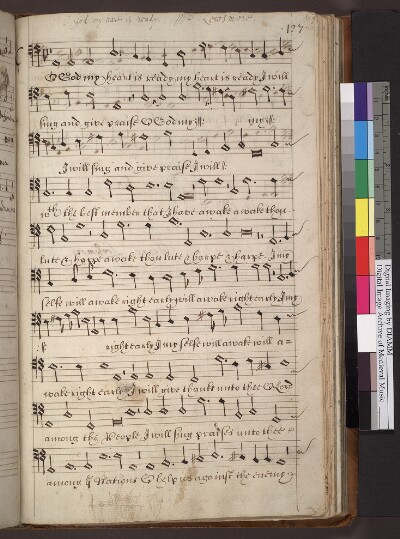 O God my heart is ready
197
O God my heart is ready, my heart is ready I will
sing and give praise O God my :||:
I will sing and give praise I will :||:
with the best member that I have awake awake thou
lute & harpe awake thou lute & harpe & harpe. I my
selfe will awake right early will awake right early I my
:|| right early I my selfe will awake will a=
wake right early I will give thanks unto thee O Lord
among the People I will sing praises unto thee
among ye Nations O help us against the enemy
Digital Imaging by DIAMM
Digital Image Archive of Medieval Music